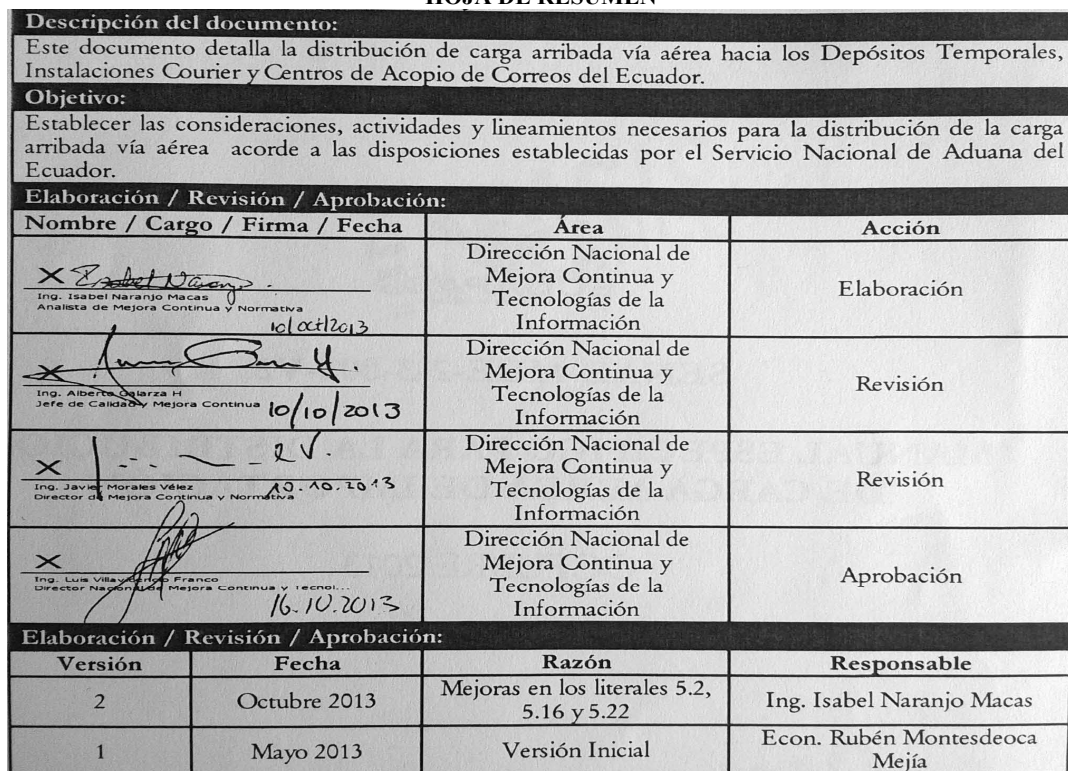 HOJA DE RESUMEN
Descripción del documento:
Este documento detalla la distribución de carga arribada vía aérea hacia los Depósitos Temporales,
Instalaciones Courier y Centros de Acopio de Correos del Ecuador.
Objetivo:
Establecer las consideraciones, actividades y lineamientos necesarios para la distribución de la carga
arribada vía aérea acorde a las disposiciones establecidas por el Servicio Nacional de Aduana del
Ecuador.
Elaboración / Revisión / Aprobación:
Nombre / Cargo / Firma / Fecha
Área
Acción
X Isabel Naranjo.
Ing. Isabel Naranjo Macas
Analista de Mejora Continua y Normativa
10/oct/2013
Dirección Nacional de
Mejora Continua y
Tecnologías de la
Información
Elaboración
X
Ing. Alberto Galarza H
Jefe de Calidad y Mejora Continua
10/10/2013
Dirección Nacional de
Mejora Continua y
Tecnologías de la
Información
Revisión
X
Ing. Javier Morales Vélez
Director de Mejora Continua y Normativa
10.10.2013
Dirección Nacional de
Mejora Continua y
Tecnologías de la
Información
Revisión
X
Ing. Luis Villavicencio Franco
Director Nacional de Mejora Continua y Tecnol...
16.10.2013
Dirección Nacional de
Mejora Continua y
Tecnologías de la
Información
Aprobación
Elaboración / Revisión / Aprobación:
Versión
Fecha
Razón
Responsable
2
Octubre 2013
Mejoras en los literales 5.2,
5.16 y 5.22
Ing. Isabel Naranjo Macas
1
Mayo 2013
Versión Inicial
Econ. Rubén Montesdeoca
Mejía